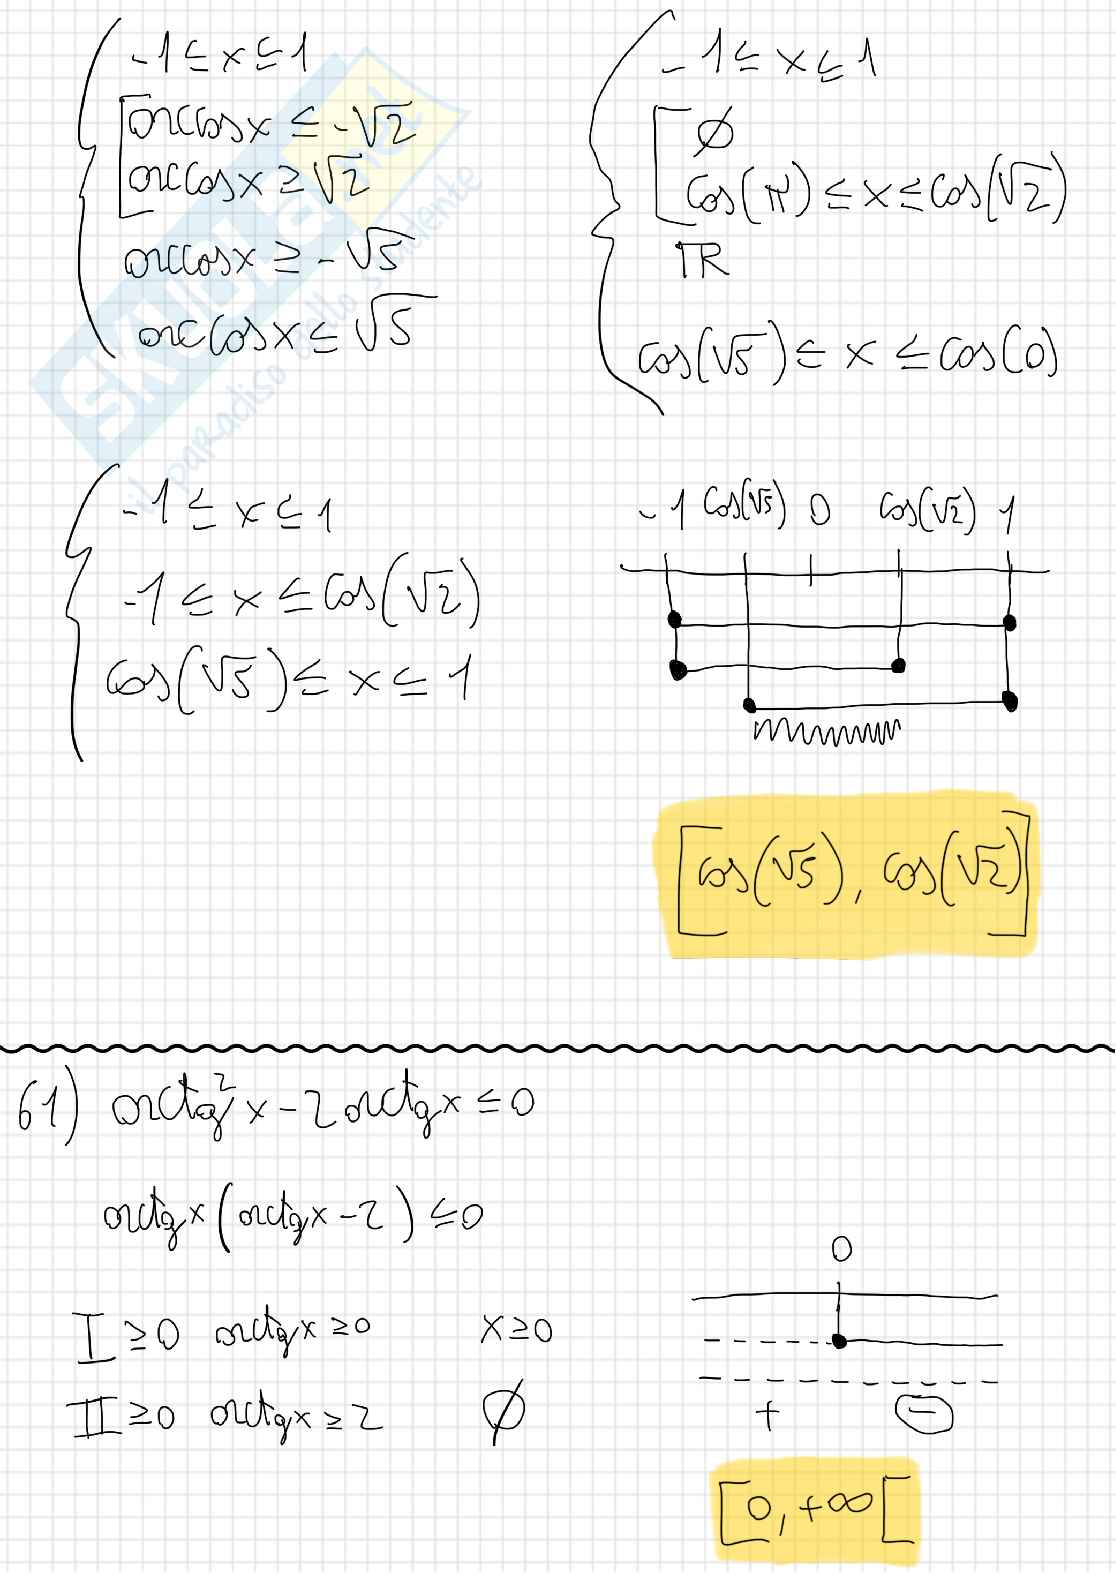 -1 ≤ x ≤ 1
arccosx ≤ -√2
arccosx ≥ √2
arccosx ≥ -√5
arccosx ≤ √5
-1 ≤ x ≤ 1
∅
cos(π) ≤ x ≤ cos(√2)
ℝ
cos(√5) ≤ x ≤ cos(0)
SKUOLA.net
il paradiso dello studente
-1 ≤ x ≤ 1
-1 ≤ x ≤ cos(√2)
cos(√5) ≤ x ≤ 1
-1 cos(√5) 0 cos(√2) 1
[cos(√5), cos(√2)]
61) arctg²x - 2arctgx ≤ 0
arctgx(arctgx - 2) ≤ 0
I ≥ 0 arctgx ≥ 0 x ≥ 0
II ≥ 0 arctgx ≥ 2 ∅
0
+ -
[0, +∞[